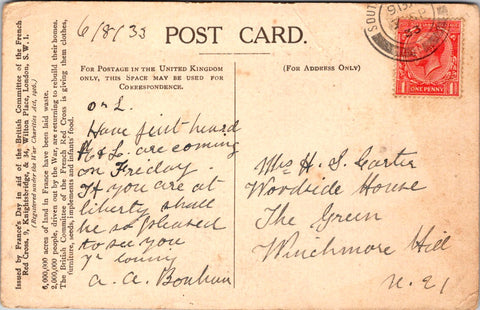 Issued by France's Day in aid of the British Committee of the French
Red Cross, 9, Knightsbridge, & 34, Wilton Place, London, S.W.1.
(Registered under the War Charities Act, 1916.)
6,000,000 acres of land in France have been laid waste.
2,000,000 people, driven out by the War, are returning to rebuild their homes.
The British Committee of the French Red Cross is giving them clothes,
furniture, seeds, implements and infants food.
6/8/33
POST CARD.
FOR POSTAGE IN THE UNITED KINGDOM
ONLY, THIS SPACE MAY BE USED FOR
CORRESPONDENCE.
(FOR ADDRESS ONLY)
SOUT
33
1 ONE PENNY 1
D. L.
Have just heard
H & L. are coming
on Friday.
If you are at
liberty shall
be so pleased
to see you
A. A. Bonham
Mrs H. S. Carter
Woodside House
The Green
Winchmore Hill
N. 21